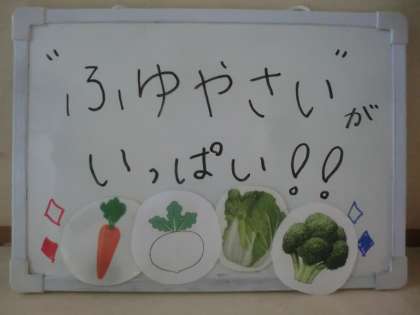 "ふゆやさい"が
いっぱい!!